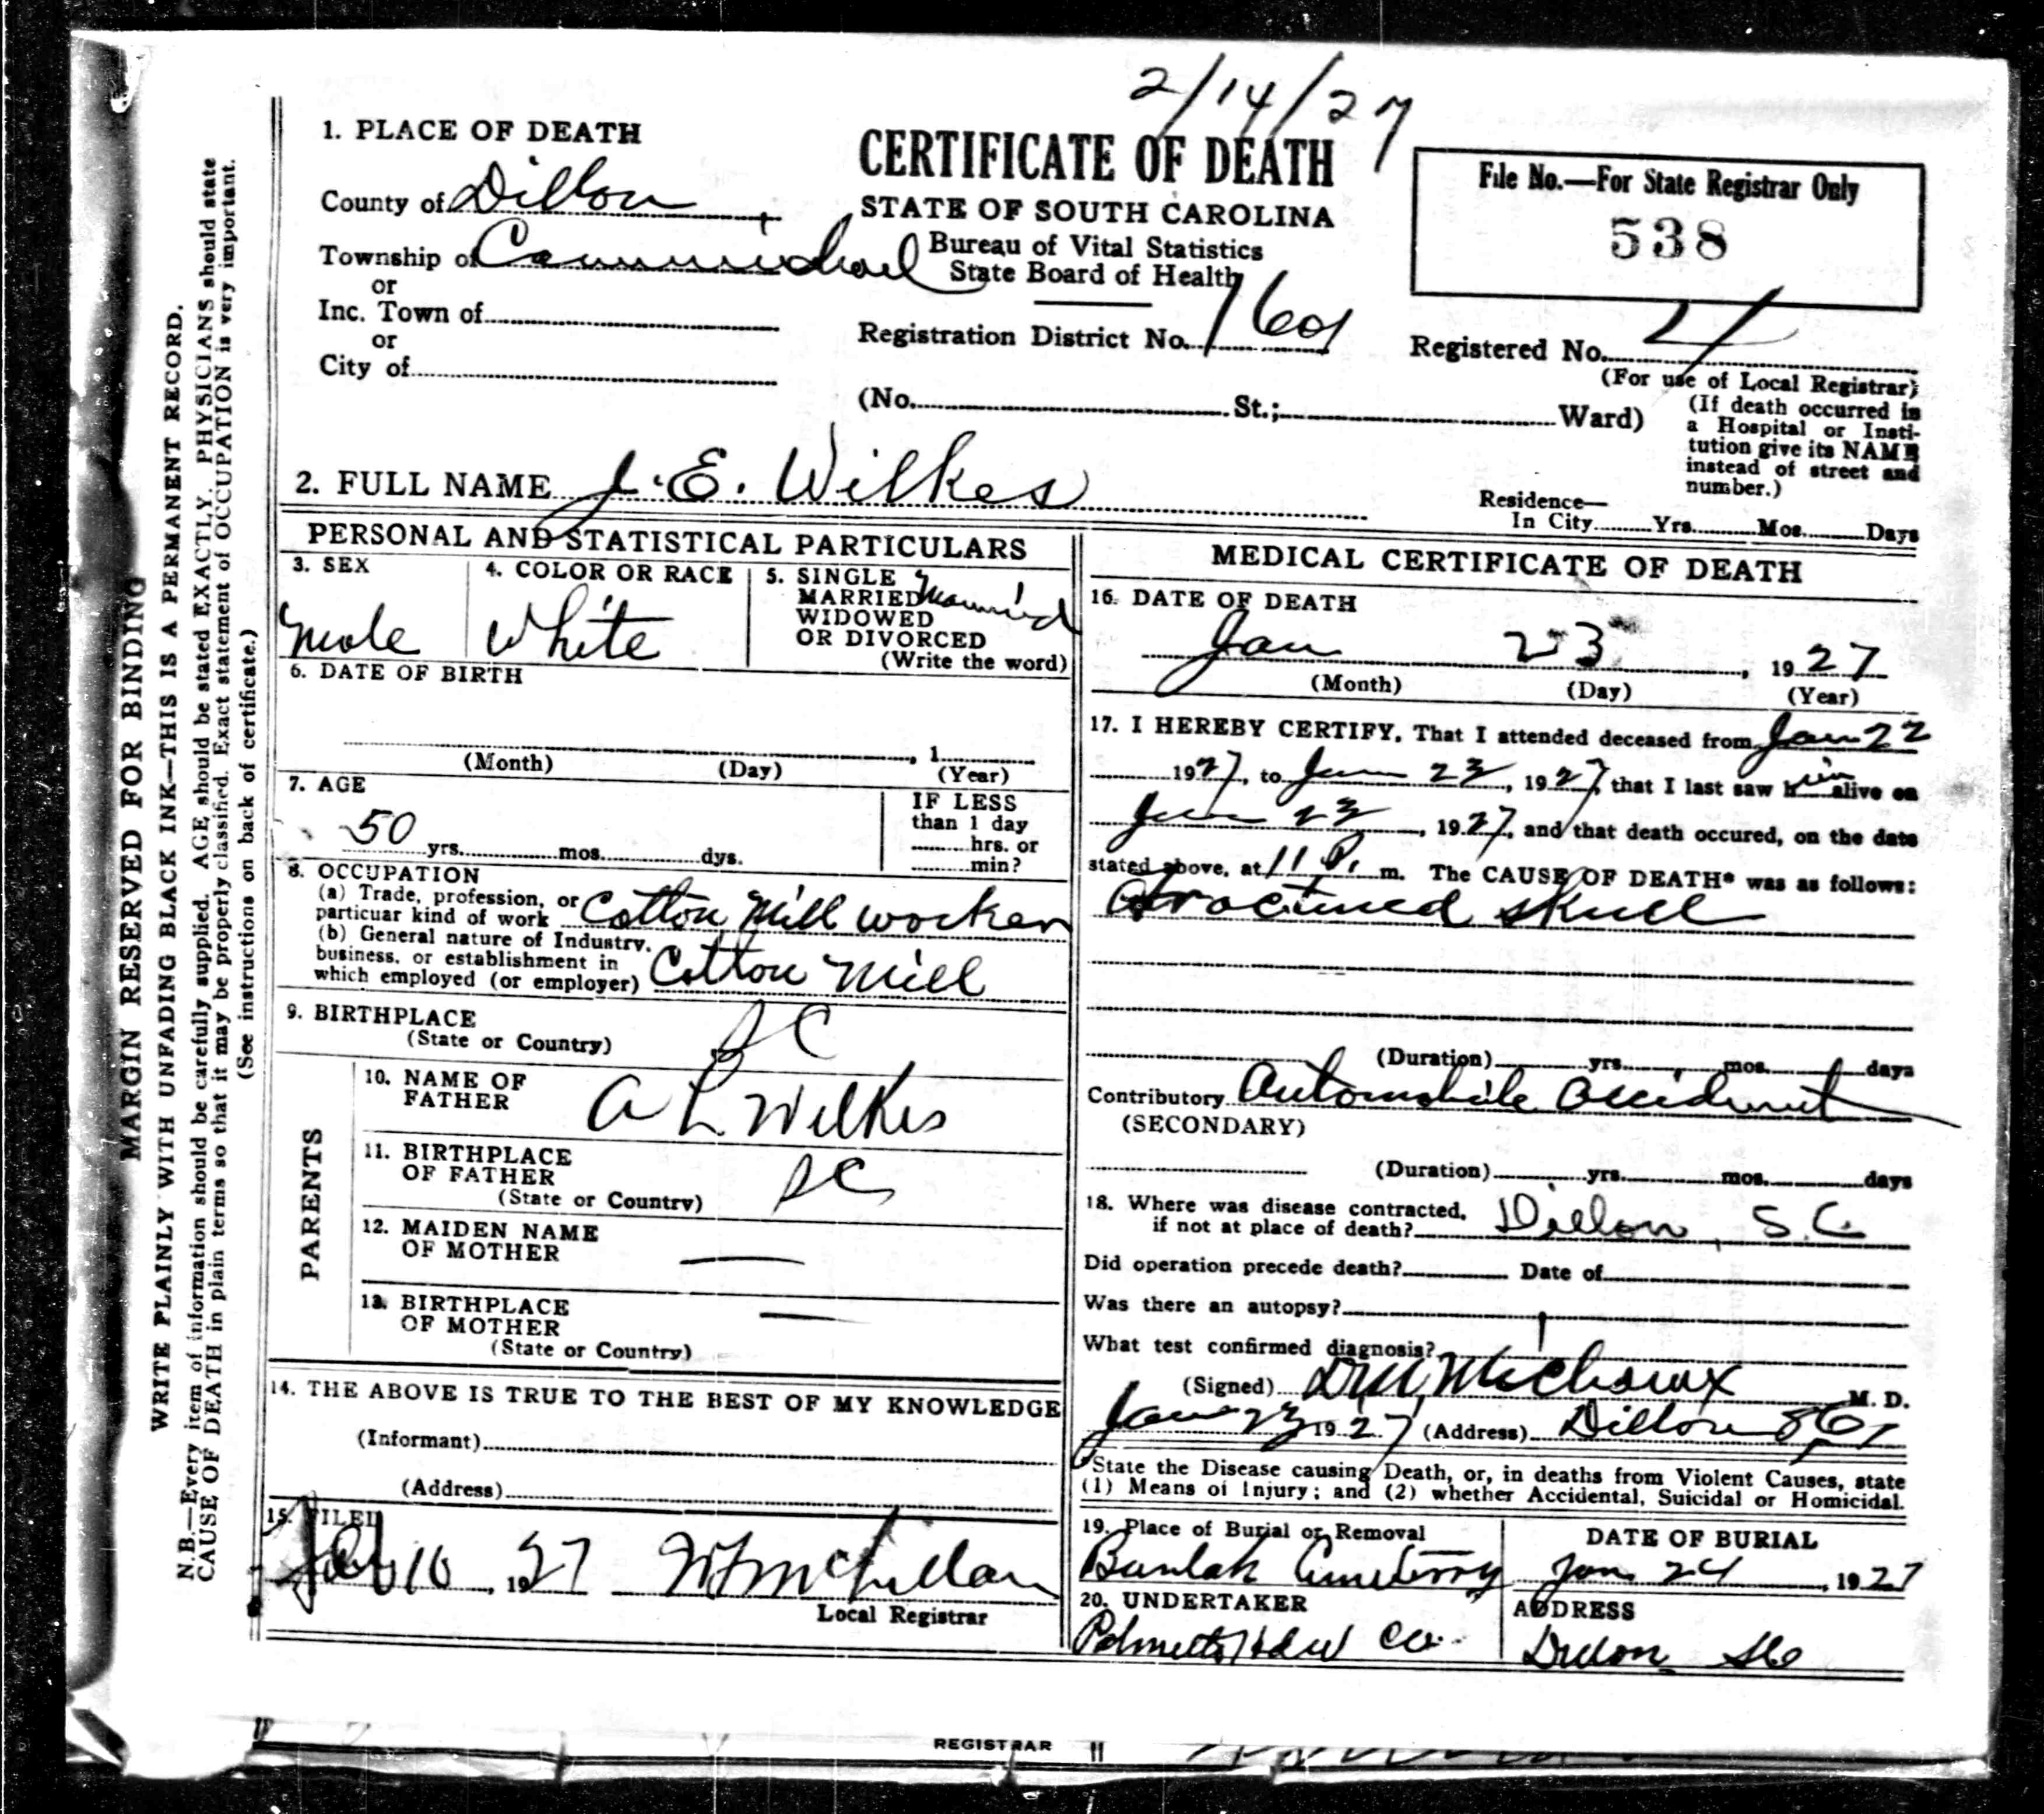 2/14/27
1. PLACE OF DEATH
County of Dillon
Township of Carmichael
or
Inc. Town of
or
City of
CERTIFICATE OF DEATH
STATE OF SOUTH CAROLINA
Bureau of Vital Statistics
State Board of Health
Registration District No. 1601
(No. St.; Ward)
File No.—For State Registrar Only
538
Registered No. 4
(For use of Local Registrar)
(If death occurred in
a Hospital or Insti-
tution give its NAME
instead of street and
number.)
2. FULL NAME J. E. Wilkes
Residence—
In City Yrs. Mos. Days
PERSONAL AND STATISTICAL PARTICULARS
3. SEX
Male
4. COLOR OR RACE
White
5. SINGLE
MARRIED Married
WIDOWED
OR DIVORCED
(Write the word)
6. DATE OF BIRTH
, 1
(Month) (Day) (Year)
7. AGE
50 yrs. mos. dys.
IF LESS
than 1 day
hrs. or
min?
8. OCCUPATION
(a) Trade, profession, or
particuar kind of work Cotton Mill worker
(b) General nature of Industry,
business, or establishment in
which employed (or employer) Cotton Mill
9. BIRTHPLACE
(State or Country) SC
PARENTS
10. NAME OF
FATHER A L Wilkes
11. BIRTHPLACE
OF FATHER
(State or Country) SC
12. MAIDEN NAME
OF MOTHER —
13. BIRTHPLACE
OF MOTHER —
(State or Country)
14. THE ABOVE IS TRUE TO THE BEST OF MY KNOWLEDGE
(Informant)
(Address)
15. FILED
Feb 10, 1927
Local Registrar
MEDICAL CERTIFICATE OF DEATH
16. DATE OF DEATH
Jan 23, 1927
(Month) (Day) (Year)
17. I HEREBY CERTIFY, That I attended deceased from Jan 22
1927, to Jan 23, 1927, that I last saw him alive on
Jan 23, 1927, and that death occured, on the date
stated above, at 11 P. m. The CAUSE OF DEATH* was as follows:
Fractured skull
(Duration) yrs. mos. days
Contributory Automobile accident
(SECONDARY)
(Duration) yrs. mos. days
18. Where was disease contracted,
if not at place of death? Dillon, S.C.
Did operation precede death? Date of
Was there an autopsy?
What test confirmed diagnosis?
(Signed) Michaux M. D.
Jan 23 1927 (Address) Dillon S.C.
State the Disease causing Death, or, in deaths from Violent Causes, state
(1) Means of Injury; and (2) whether Accidental, Suicidal or Homicidal.
19. Place of Burial or Removal
Cemetery
DATE OF BURIAL
Jan 24, 1927
20. UNDERTAKER
Palmetto Hdw Co.
ADDRESS
Dillon SC
MARGIN RESERVED FOR BINDING
WRITE PLAINLY WITH UNFADING BLACK INK—THIS IS A PERMANENT RECORD.
N.B.—Every item of information should be carefully supplied. AGE should be stated EXACTLY. PHYSICIANS should state
CAUSE OF DEATH in plain terms so that it may be properly classified. Exact statement of OCCUPATION is very important.
(See instructions on back of certificate.)
REGISTRAR